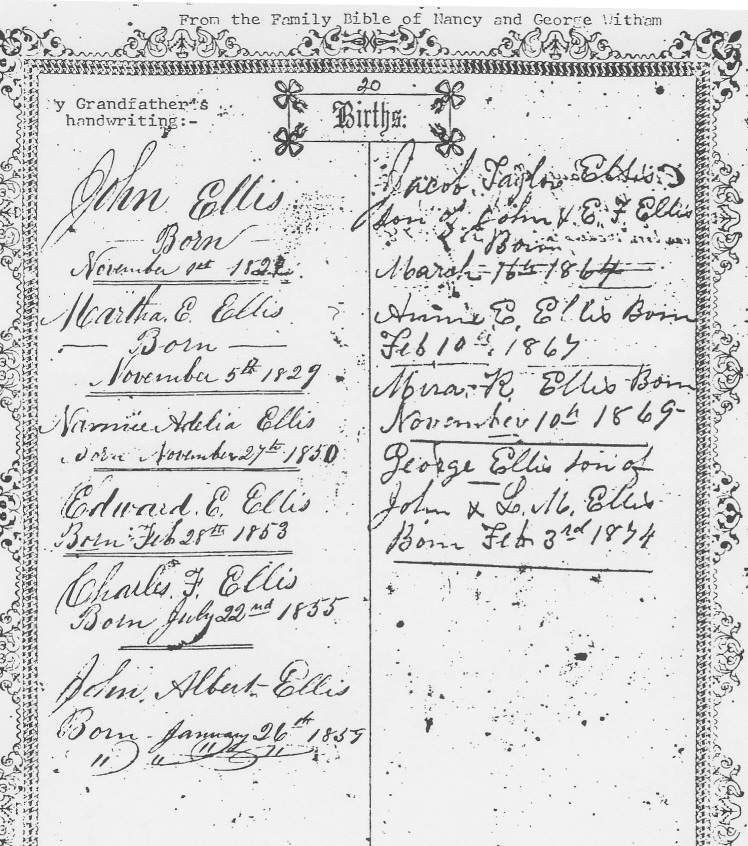 From the Family Bible of Nancy and George Witham
20
y Grandfather's
handwriting:-
Births:
John Ellis
Born
November 1st
Martha. E. Ellis
Born
November 5th 1829
Adelia Ellis
Born November 27th 1850
Edward. E. Ellis
Born Feb 28th 1853
Charles. F. Ellis
Born July 22nd 1855
John. Albert Ellis
Born January 26th
" " " "
Jacob. Taylor Ellis
son of John & E. F Ellis
Born
March 16th 1864
Annie E. Ellis Born
Feb 10th 1867
Mira. R. Ellis Born
November 10th 1869
George Ellis son of
John & L. M. Ellis
Born Feb 3rd 1874